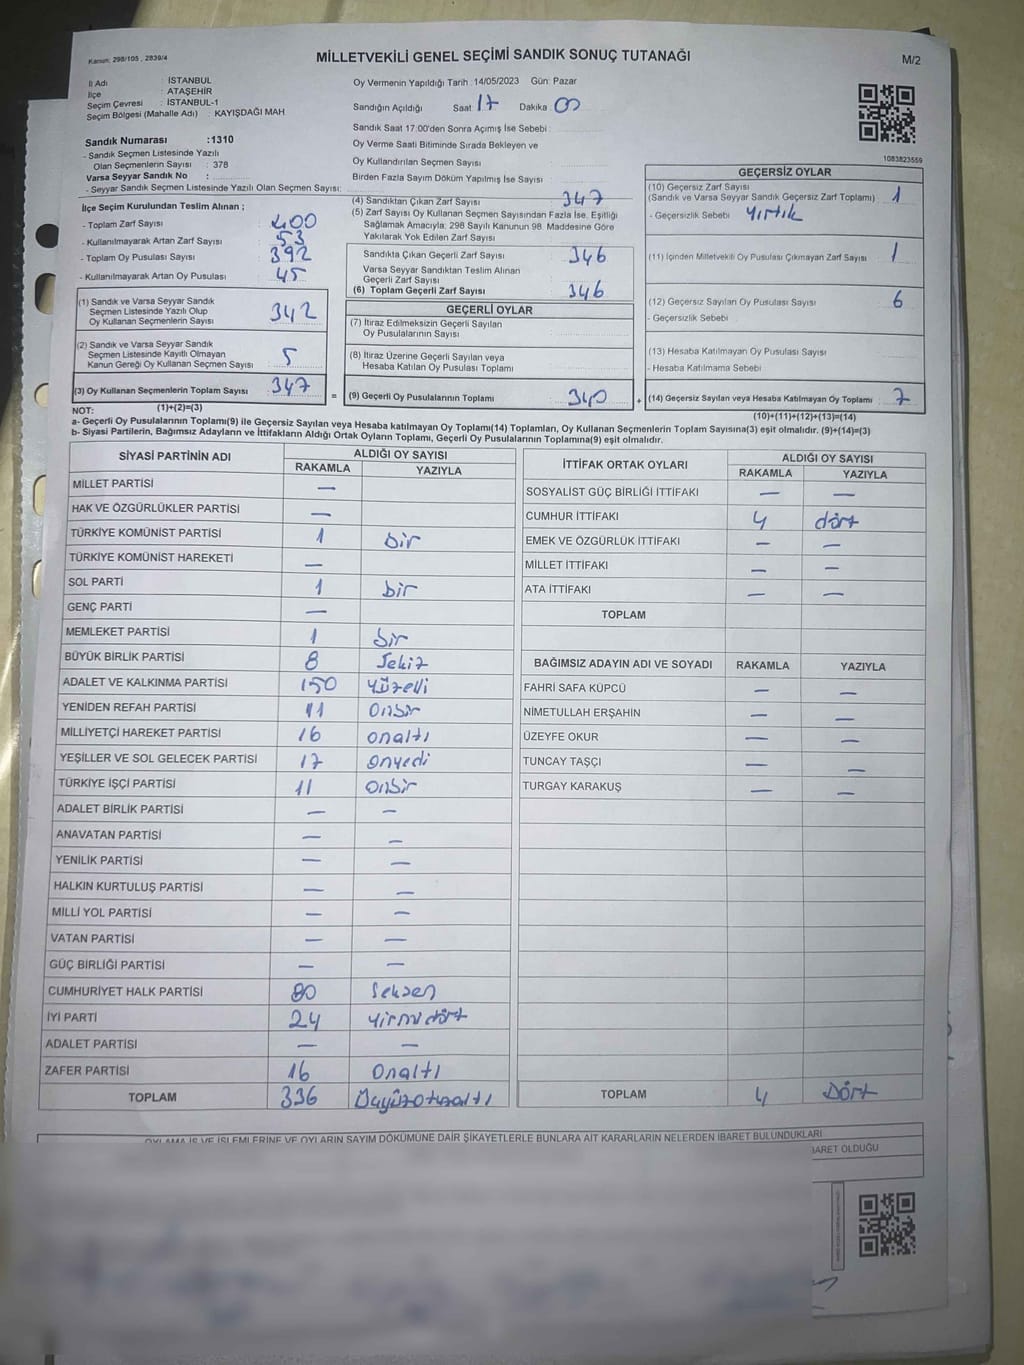 Kanun: 298/105 , 2839/4
MİLLETVEKİLİ GENEL SEÇİMİ SANDIK SONUÇ TUTANAĞI
M/2
İl Adı : İSTANBUL
İlçe : ATAŞEHİR
Seçim Çevresi : İSTANBUL-1
Seçim Bölgesi (Mahalle Adı) : KAYIŞDAĞI MAH
Sandık Numarası :1310
- Sandık Seçmen Listesinde Yazılı
Olan Seçmenlerin Sayısı : 378
Varsa Seyyar Sandık No :
- Seyyar Sandık Seçmen Listesinde Yazılı Olan Seçmen Sayısı:
Oy Vermenin Yapıldığı Tarih :14/05/2023 Gün: Pazar
Sandığın Açıldığı Saat 17 Dakika 00
Sandık Saat 17:00'den Sonra Açımış İse Sebebi :
Oy Verme Saati Bitiminde Sırada Bekleyen ve
Oy Kullandırılan Seçmen Sayısı
Birden Fazla Sayım Döküm Yapılmış İse Sayısı :
1083823559
İlçe Seçim Kurulundan Teslim Alınan ;
- Toplam Zarf Sayısı : 400
- Kullanılmayarak Artan Zarf Sayısı : 53
- Toplam Oy Pusulası Sayısı : 392
- Kullanılmayarak Artan Oy Pusulası : 45
(1) Sandık ve Varsa Seyyar Sandık
Seçmen Listesinde Yazılı Olup
Oy Kullanan Seçmenlerin Sayısı : 342
(2) Sandık ve Varsa Seyyar Sandık
Seçmen Listesinde Kayıtlı Olmayan
Kanun Gereği Oy Kullanan Seçmen Sayısı : 5
(3) Oy Kullanan Seçmenlerin Toplam Sayısı : 347
(4) Sandıktan Çıkan Zarf Sayısı : 347
(5) Zarf Sayısı Oy Kullanan Seçmen Sayısından Fazla İse, Eşitliği
Sağlamak Amacıyla; 298 Sayılı Kanunun 98. Maddesine Göre
Yakılarak Yok Edilen Zarf Sayısı :
Sandıkta Çıkan Geçerli Zarf Sayısı : 346
Varsa Seyyar Sandıktan Teslim Alınan
Geçerli Zarf Sayısı :
(6) Toplam Geçerli Zarf Sayısı : 346
GEÇERLİ OYLAR
(7) İtiraz Edilmeksizin Geçerli Sayılan
Oy Pusulalarının Sayısı :
(8) İtiraz Üzerine Geçerli Sayılan veya
Hesaba Katılan Oy Pusulası Toplamı :
= (9) Geçerli Oy Pusulalarının Toplamı : 340 +
GEÇERSİZ OYLAR
(10) Geçersiz Zarf Sayısı
(Sandık ve Varsa Seyyar Sandık Geçersiz Zarf Toplamı) : 1
- Geçersizlik Sebebi : Yırtık
(11) İçinden Milletvekili Oy Pusulası Çıkmayan Zarf Sayısı : 1
(12) Geçersiz Sayılan Oy Pusulası Sayısı : 6
- Geçersizlik Sebebi :
(13) Hesaba Katılmayan Oy Pusulası Sayısı :
- Hesaba Katılmama Sebebi :
(14) Geçersiz Sayılan veya Hesaba Katılmayan Oy Toplamı : 7
NOT: (1)+(2)=(3)
(10)+(11)+(12)+(13)=(14)
a- Geçerli Oy Pusulalarının Toplamı(9) ile Geçersiz Sayılan veya Hesaba katılmayan Oy Toplamı(14) Toplamları, Oy Kullanan Seçmenlerin Toplam Sayısına(3) eşit olmalıdır. (9)+(14)=(3)
b- Siyasi Partilerin, Bağımsız Adayların ve İttifakların Aldığı Ortak Oyların Toplamı, Geçerli Oy Pusulalarının Toplamına(9) eşit olmalıdır.
SİYASİ PARTİNİN ADI ALDIĞI OY SAYISI
RAKAMLA YAZIYLA
MİLLET PARTİSİ —
HAK VE ÖZGÜRLÜKLER PARTİSİ —
TÜRKİYE KOMÜNİST PARTİSİ 1 bir
TÜRKİYE KOMÜNİST HAREKETİ —
SOL PARTİ 1 bir
GENÇ PARTİ —
MEMLEKET PARTİSİ 1 bir
BÜYÜK BİRLİK PARTİSİ 8 Sekiz
ADALET VE KALKINMA PARTİSİ 150 Yüzelli
YENİDEN REFAH PARTİSİ 11 Onbir
MİLLİYETÇİ HAREKET PARTİSİ 16 onaltı
YEŞİLLER VE SOL GELECEK PARTİSİ 17 onyedi
TÜRKİYE İŞÇİ PARTİSİ 11 Onbir
ADALET BİRLİK PARTİSİ — —
ANAVATAN PARTİSİ — —
YENİLİK PARTİSİ — —
HALKIN KURTULUŞ PARTİSİ — —
MİLLİ YOL PARTİSİ — —
VATAN PARTİSİ — —
GÜÇ BİRLİĞİ PARTİSİ — —
CUMHURİYET HALK PARTİSİ 80 Seksen
İYİ PARTİ 24 Yirmi dört
ADALET PARTİSİ — —
ZAFER PARTİSİ 16 Onaltı
TOPLAM 336 Üçyüzotuzaltı
İTTİFAK ORTAK OYLARI ALDIĞI OY SAYISI
RAKAMLA YAZIYLA
SOSYALİST GÜÇ BİRLİĞİ İTTİFAKI — —
CUMHUR İTTİFAKI 4 dört
EMEK VE ÖZGÜRLÜK İTTİFAKI — —
MİLLET İTTİFAKI — —
ATA İTTİFAKI — —
TOPLAM
BAĞIMSIZ ADAYIN ADI VE SOYADI RAKAMLA YAZIYLA
FAHRİ SAFA KÜPCÜ — —
NİMETULLAH ERŞAHİN — —
ÜZEYFE OKUR — —
TUNCAY TAŞÇI — —
TURGAY KARAKUŞ — —
TOPLAM 4 Dört
OYLAMA İŞ VE İŞLEMLERİNE VE OYLARIN SAYIM DÖKÜMÜNE DAİR ŞİKAYETLERLE BUNLARA AİT KARARLARIN NELERDEN İBARET BULUNDUKLARI
BARET OLDUĞU